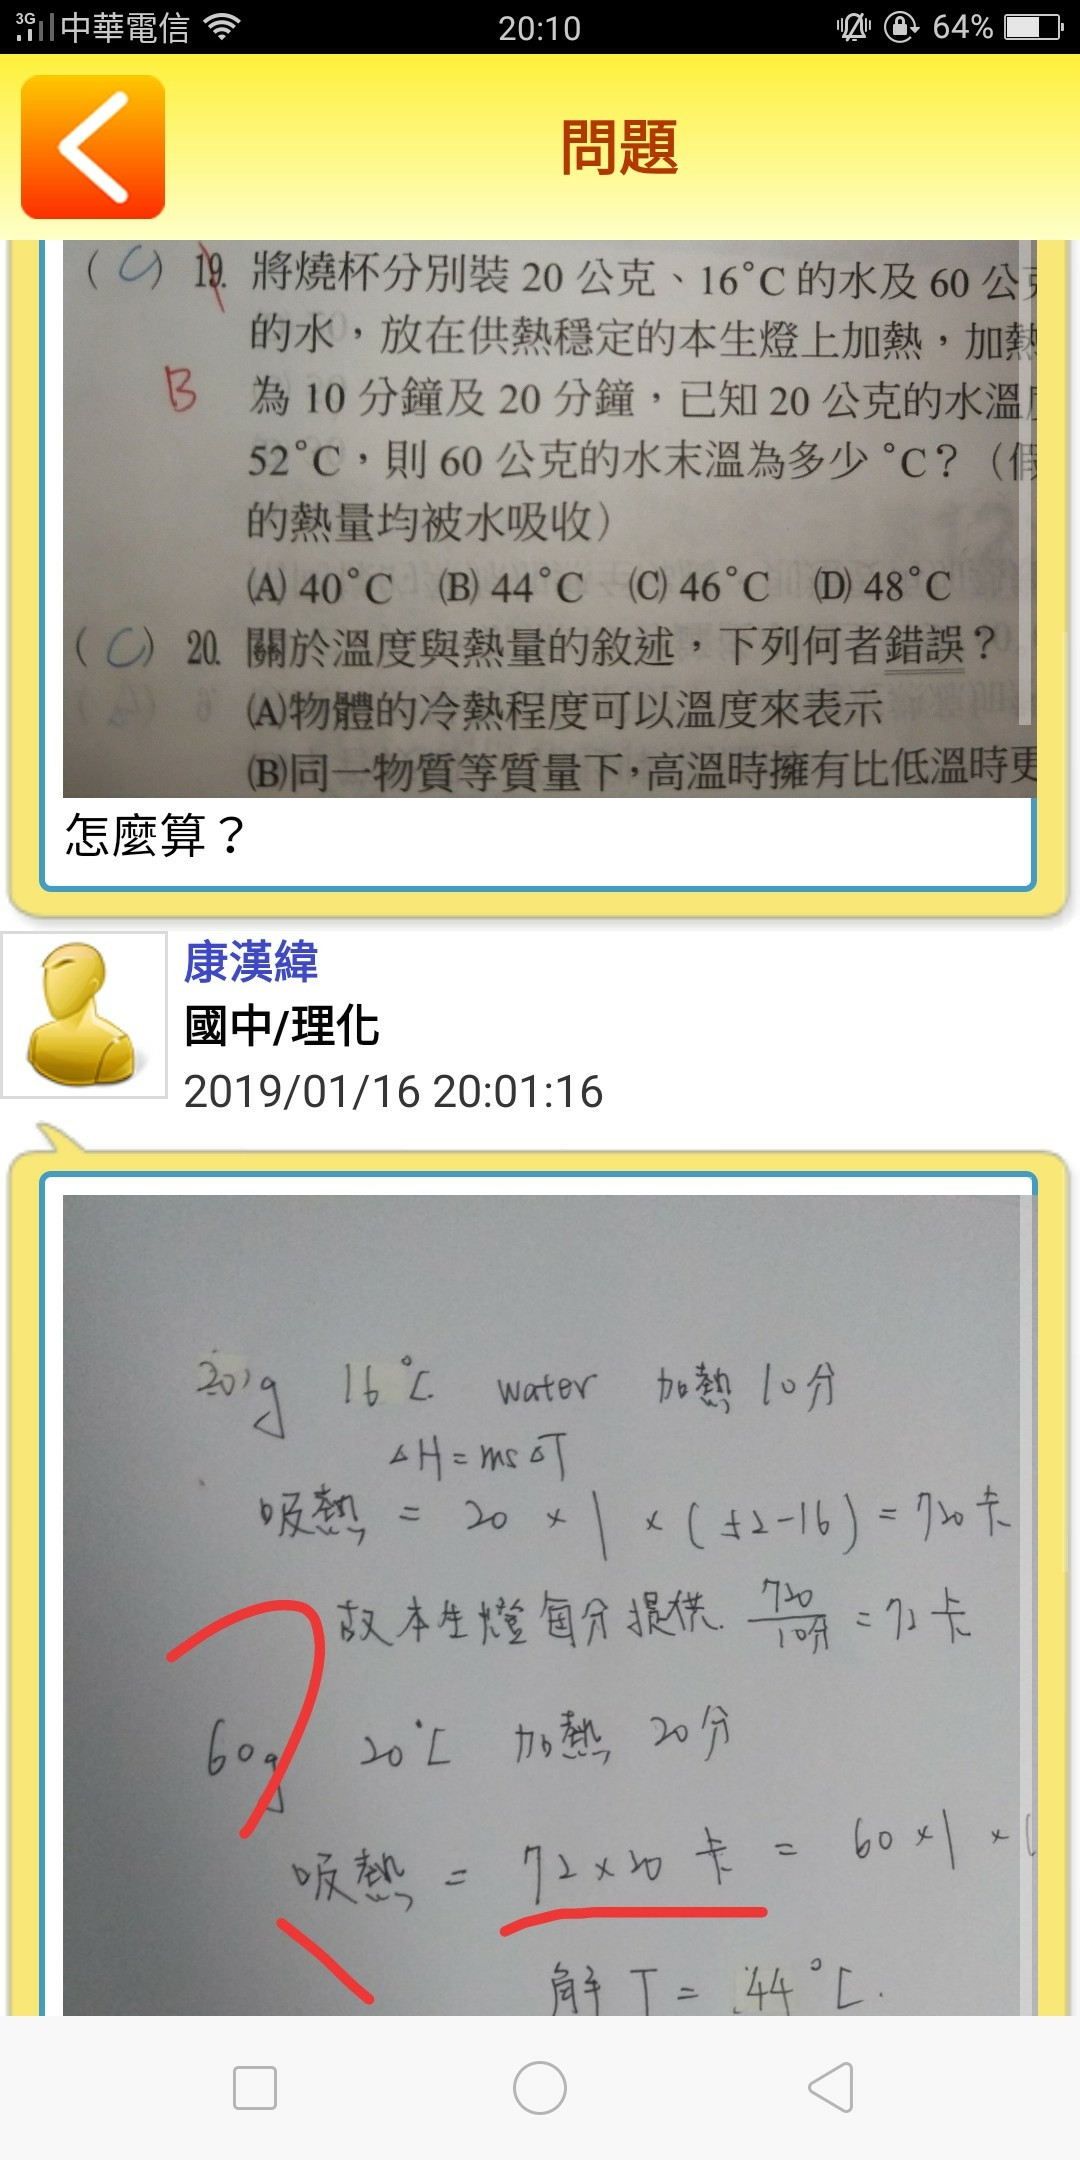 3G 中華電信 20:10 64%
問題
( C ) 19. 將燒杯分別裝 20 公克、16°C 的水及 60 公
的水，放在供熱穩定的本生燈上加熱，加熱
B 為 10 分鐘及 20 分鐘，已知 20 公克的水溫
52°C，則 60 公克的水末溫為多少 °C？（假
的熱量均被水吸收）
(A) 40°C (B) 44°C (C) 46°C (D) 48°C
( C ) 20. 關於溫度與熱量的敘述，下列何者錯誤？
(A)物體的冷熱程度可以溫度來表示
(B)同一物質等質量下，高溫時擁有比低溫時更
怎麼算？
康漢緯
國中/理化
2019/01/16 20:01:16
20g 16°C water 加熱 10分
△H = ms△T
吸熱 = 20 × 1 × (52-16) = 720卡
故本生燈每分提供 720/10分 = 72卡
60g 20°C 加熱 20分
吸熱 = 72×20 卡 = 60×1×(
解 T = 44°C.